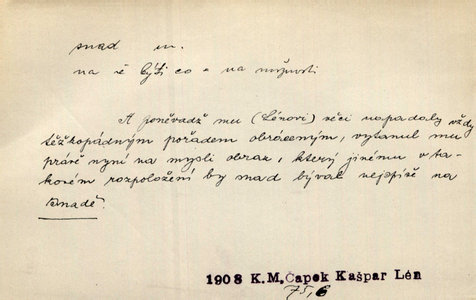 snad m.
na ně býti co = na
A poněvadž mu (Lénovi) věci napadaly vždy
těžkopádným pořadem obráceným, vytanul mu
právě nyní na mysli obraz, který jinému v ta-
kovém rozpoložení by snad býval nejspíše na
snadě.
1908 K.M.Čapek Kašpar Lén
75,6